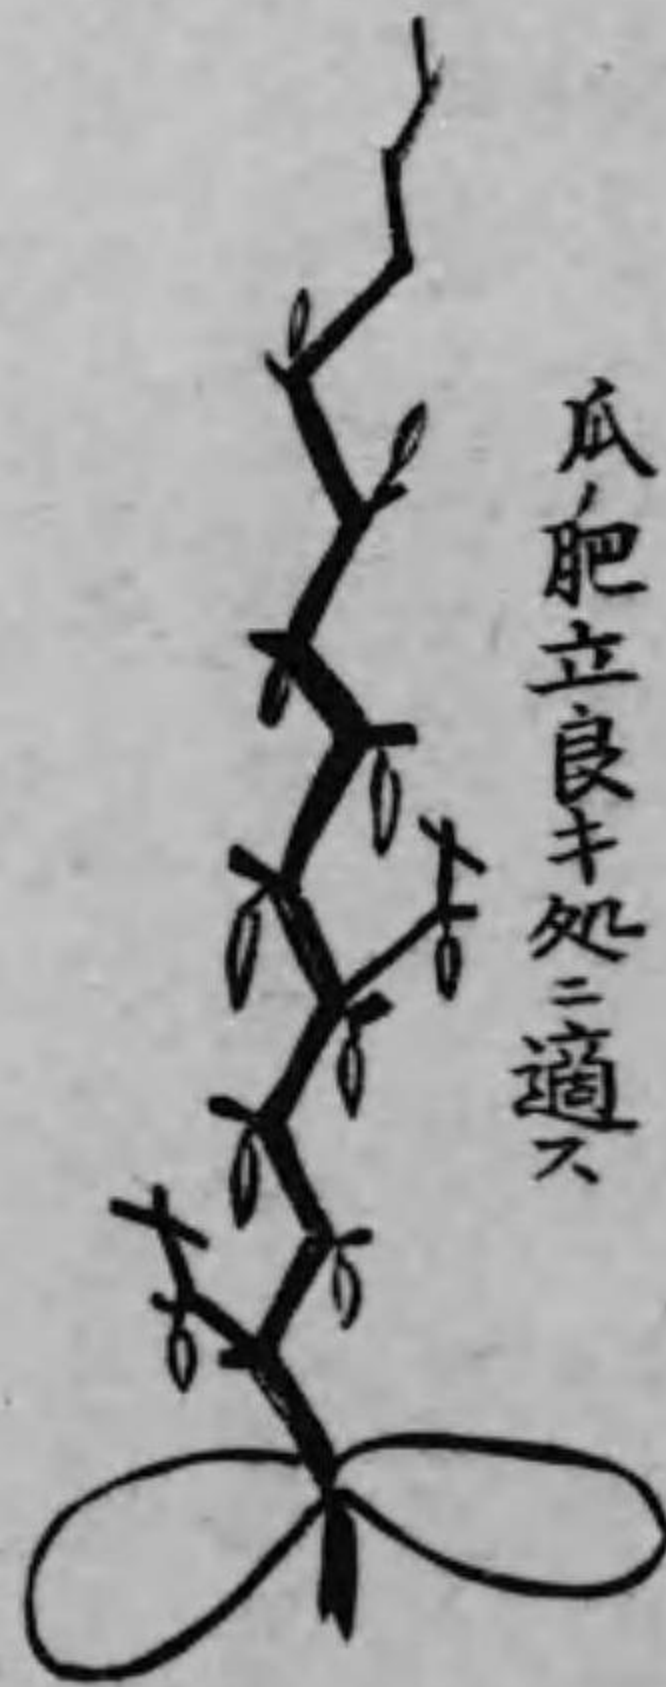 瓜ノ肥立良キ処ニ適ス